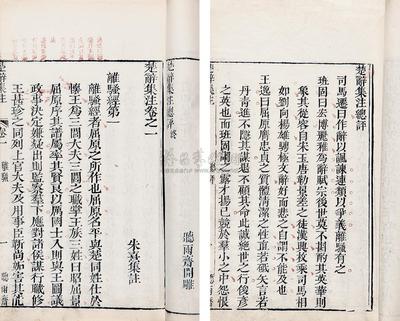 楚辭集注總評
司馬遷曰作辭以諷諫連類以爭義離騷有之
班固曰宏博麗雅為辭賦宗後世莫不斟酌其英華則
象其從容自宋玉唐勒景差之徒漢興枚乘司馬相
如劉向楊雄騁極文辭好而悲之自謂不能及也
王逸曰屈原膺忠貞之質體清潔之性直若砥矢言若
丹青進不隱其謀退不顧其命此誠絕世之行俊彥
之英也而班固謂之露才揚己競於羣小之中怨恨
楚辭集注總評終
聽雨齋開雕
楚辭集注卷之一
朱熹集註
離騷經第一
離騷經者屈原之所作也屈原名平與楚同姓仕於
懷王為三閭大夫三閭之職掌王族三姓曰昭屈景
屈原序其譜屬率其賢良以厲國士入則與王圖議
政事決定嫌疑出則監察羣下應對諸侯謀行職修
王甚珍之同列上官大夫及用事臣靳尚妒害其能
楚辭集注 卷一 離騷 一 聽雨齋